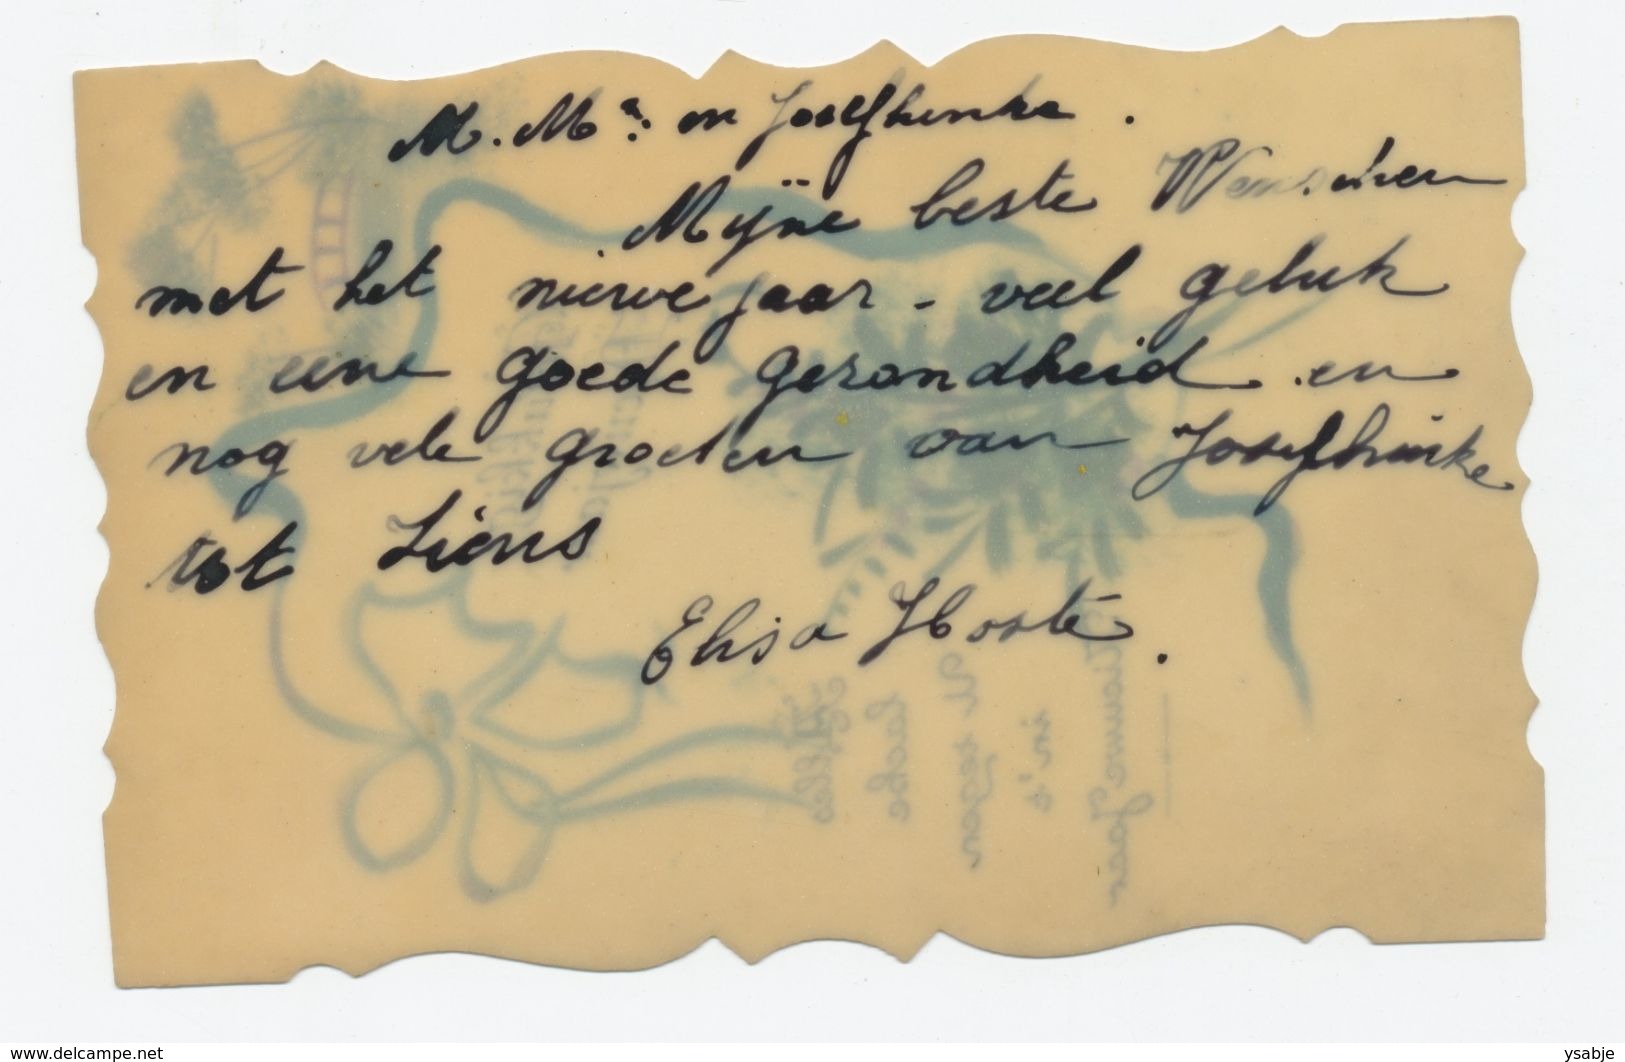 M. Mª. en Joselhinke.
Mijne beste Wenschen
met het nieuwe jaar - veel geluk
en eene goede gezondheid en
nog vele groeten van Joselhinke
tot Ziens
Elisa Hoste.
Nieuwe Jaar
in's
lache
www.delcampe.net
ysabje